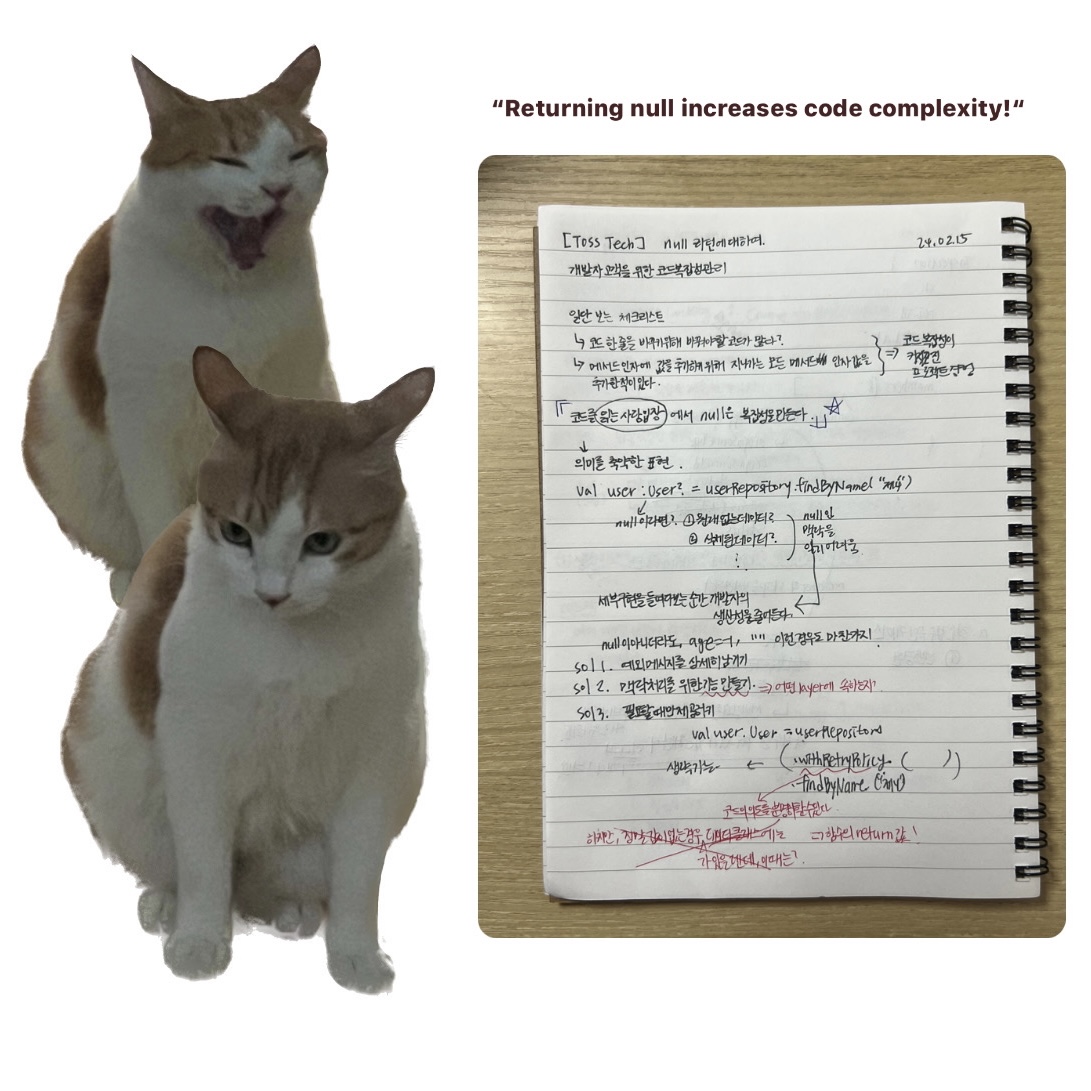 “Returning null increases code complexity!“
[Toss Tech] null 리턴에 대하여. 24.02.15
개발자 고객을 위한 코드복잡성관리
일단 보는 체크리스트
↳ 코드 한 줄을 바꾸기위해 바꿔야할 코드가 많다?
↳ 메서드 인자에 값을 추가하기 위해 지나가는 모든 메서드에 인자 값을
추가한 적이 있다.
⇒ 코드 복잡성이
커질
프로젝트
「코드를 읽는 사람 입장에서 null은 복잡성을 만든다.」☆
↓
의미를 축약한 표현.
val user : User? = userRepository.findByName(
null이라면? ① 원래 없는 데이터?
② 삭제된 데이터?
⋮
null의
맥락을
알기 어려움
세부구현을 들여다보는 순간 개발자의
생산성은 줄어든다.
null이 아니더라도, age=-1, "" 이런 경우도 마찬가지!
sol 1. 예외메시지를 상세히 남기기
sol 2. 맥락처리를 위한 기능 만들기. ⇒ 어떤 layer에 속하는지?
sol 3. 필요할 때만
val user. User = userRepository
← ( .withRetryPolicy ( ) )
.findByName
코드의 의도를 분명히
하지만,
⇒ 함수의 return 값!
이때는?